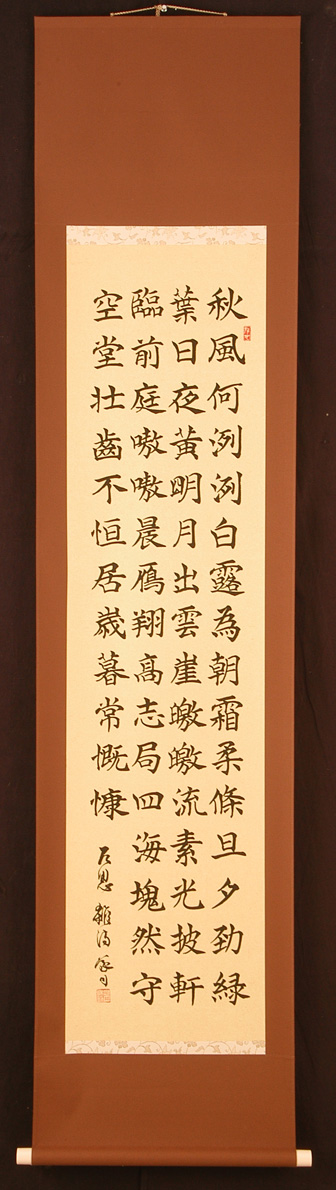 秋風何洌洌白露為朝霜柔條旦夕勁緑
葉日夜黄明月出雲崖皦皦流素光披軒
臨前庭嗷嗷晨鴈翔髙志局四海塊然守
空堂壮齒不恒居歳暮常慨慷 左思 雜詩